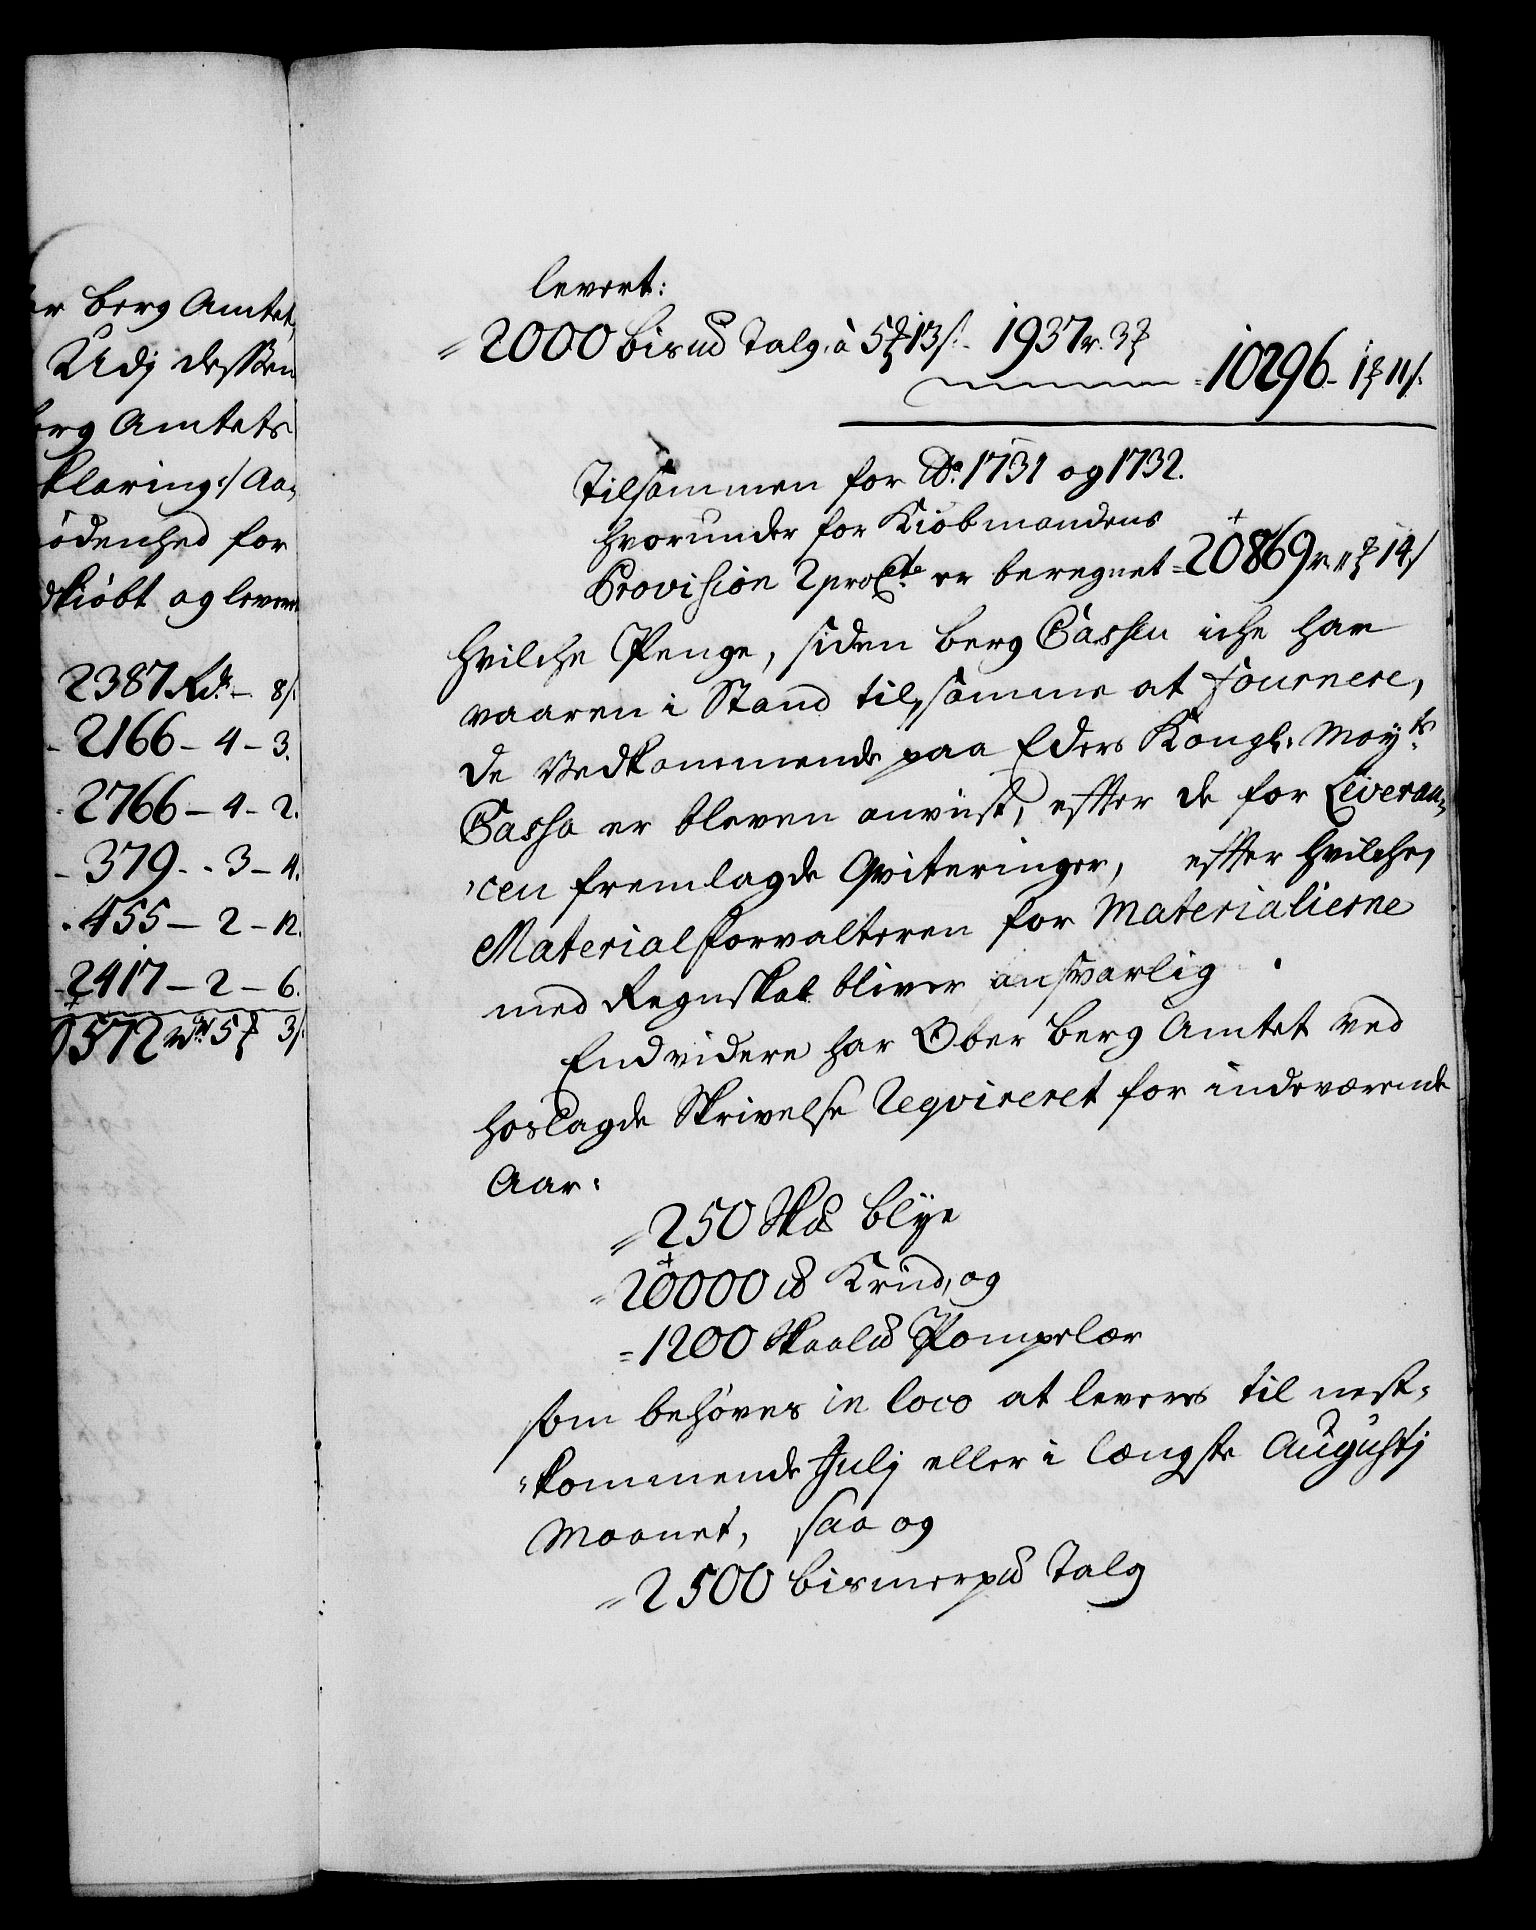 er Berg Amtet,
Udj dessen
erg Amtets
klaring:/ Aa,
ødenhed for
dkiøbt og lever
2387 Rdr. – 8 s:
- 2166 – 4 – 3.
- 2766 – 4 – 2.
- 379 - - 3 – 4.
- 455 – 2 – 12.
- 2417 – 2 – 6.
0572 rdr 5 ℳ 3 s:
levert:
= 2000 bis℔ Talg. à 5 ℳ 13 s: - 1937 r. 3 ℳ
= 10296 - 1 ℳ 11 s:
Tilsammen for Ao. 1731 og 1732.
hvorunder for Kiøbmandens
Provision 2 proCto er beregnet = 20869 r. „ ℳ 14 s
hvilche Penge, siden Berg Cassen iche har
vaaren i Stand til, samme at fournere,
de Vedkommende paa Eders Kongl. Mayts
Cassa er bleven anviist, effter de for Leveran,
,cen fremlagde Qviteringer, effter hvilche,
Materialforvalteren for Materialierne
med Regnskab bliver ansvarlig.
Endvidere har Ober Berg Amtet ved
hoslagde Skrivelse Reqvireret for indeværende
Aar:
= 250 Sk℔ Blye
= 20000 ℔ Krud, og
= 1200 Skaal℔ Pompelær
som behøves in loco at leveres til nest=
=kommende Julj eller i længste Augustj
Maanet, saa og
= 2500 bismerp℔ Talg